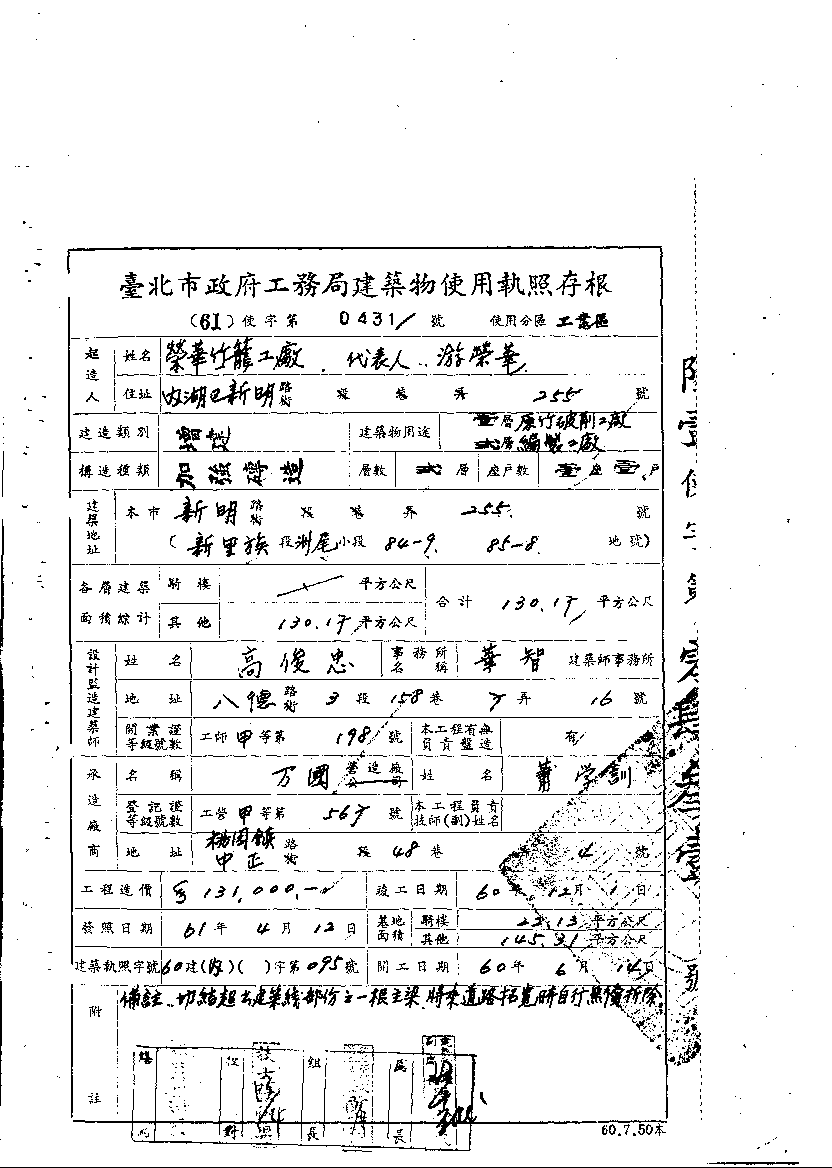 臺北市政府工務局建築物使用執照存根
(61)使字第 0431 號 使用分區 工業區
起造人 姓名 榮華竹籠工廠 代表人 游榮華
住址 內湖區新明路街 段 巷 弄 255 號
建造類別 增建 建築物用途 壹層原竹破削工廠 貳層編製工廠
構造種類 加強磚造 層數 貳層 座戶數 壹座壹戶
建築地址 本市 新明路街 段 巷 弄 255 號
(新里族段洲尾小段 84-9 85-8 地號)
各層建築面積綜計 騎樓 平方公尺 合計 130.17 平方公尺
其他 130.17 平方公尺
設計監造建築師 姓名 高俊忠 事務所名稱 華智 建築師事務所
地址 八德路街 3 段 158 巷 弄 16 號
開業證等級號數 工師甲等第 198 號 本工程有無負責監造 有
承造廠商 名稱 万國營造廠公司 姓名 蕭学訓
登記證等級號數 工營甲等第 567 號 本工程負責技師(副)姓名
地址 楊梅鎮中正路街 段 48 巷 弄 4 號
工程造價 131,000.- 竣工日期 60年12月1日
發照日期 61年4月12日 基地面積 騎樓 22.13 平方公尺
其他 145.31 平方公尺
建築執照字號 60建( )( )字第095號 開工日期 60年6月14日
附註 備註:切結超出建築線部份之一根主梁,將來道路拓寬時自行無償拆除
組長 局長
60.7.50本